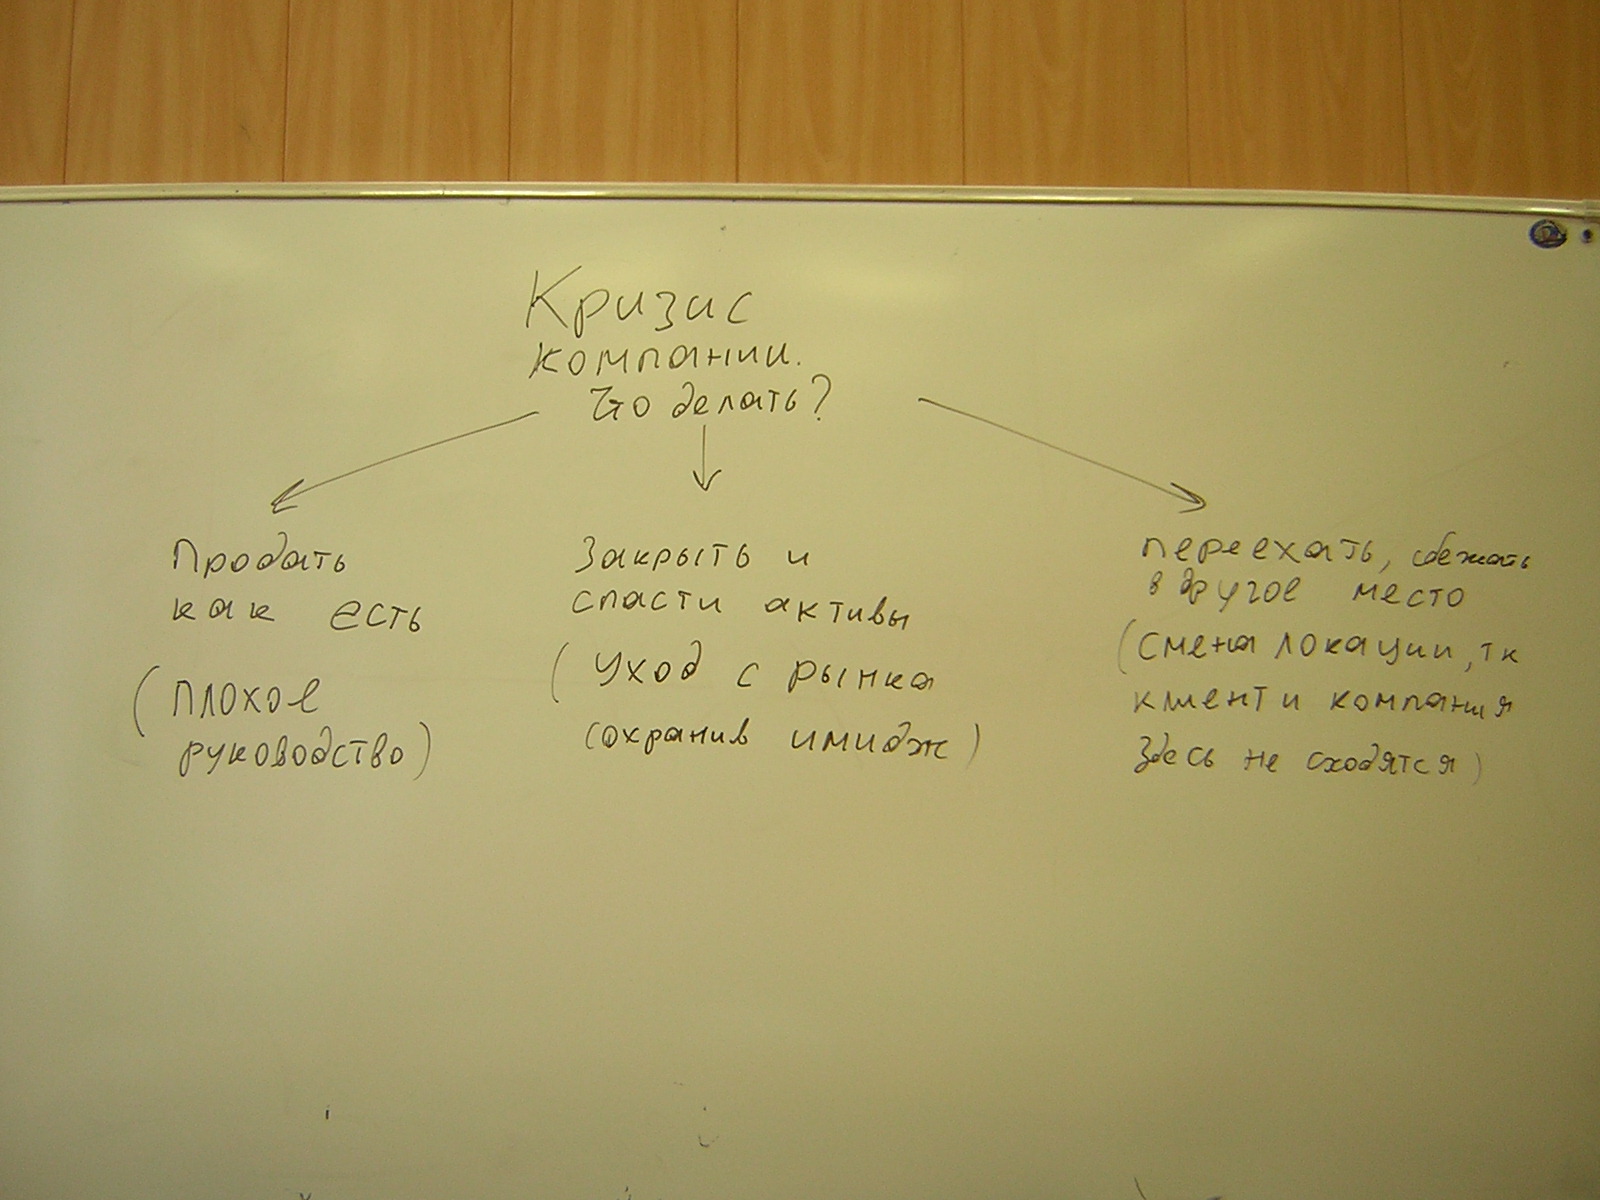 Кризис
компании.
Что делать?
Продать
как есть
(плохое
руководство)
Закрыть и
спасти активы
(уход с рынка
сохранив имидж)
переехать, сбежать
в другое место
(смена локации, тк
клиент и компания
здесь не сходятся)